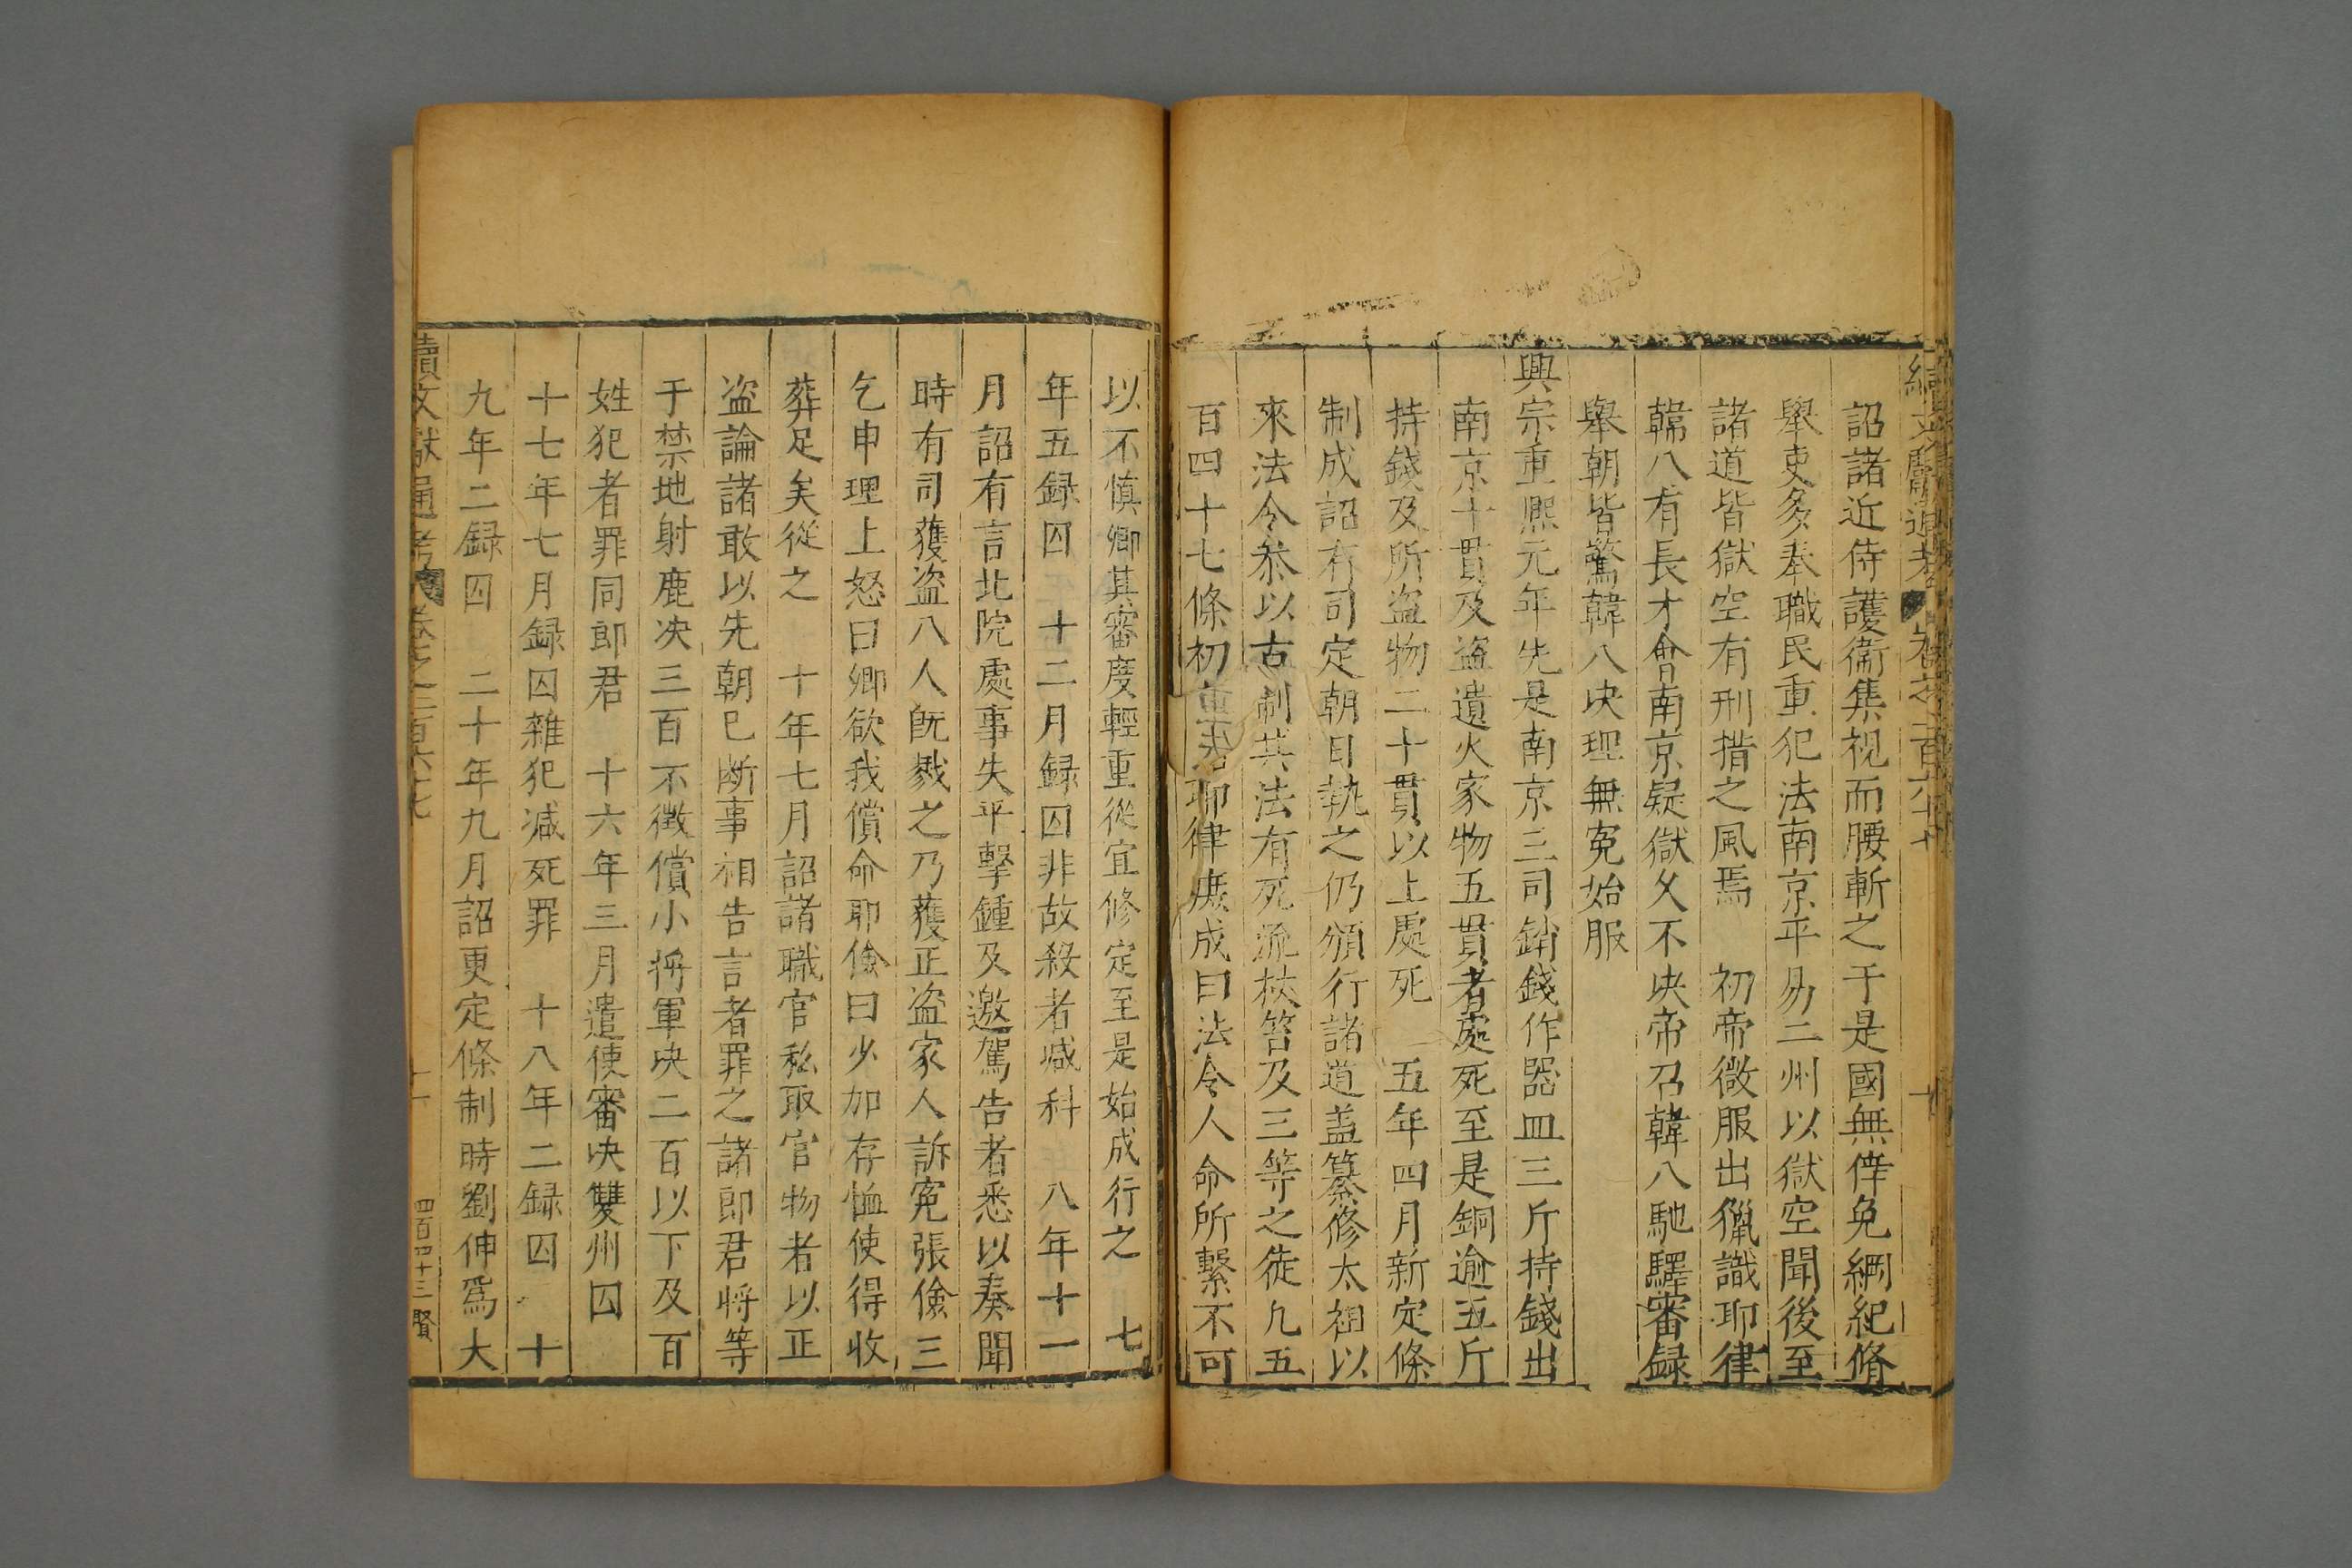 續文獻通考 卷之一百六十七
詔諸近侍護衞集視而腰斬之于是國無倖免綱紀脩
舉吏多奉職民重犯法南京平易二州以獄空聞後至
諸道皆獄空有刑措之風焉 初帝微服出獵識耶律
韓八有長才會南京疑獄久不决帝召韓八馳驛審録
舉朝皆驚韓八决理無寃始服
興宗重熈元年先是南京三司銷錢作器皿三斤持錢出
南京十貫及盜遺火家物五貫者處死至是銅逾五斤
持錢及所盜物二十貫以上處死 五年四月新定條
制成詔有司定朝日執之仍頒行諸道盖纂修太祖以
來法令叅以古制其法有死流杖笞及三等之徒凡五
百四十七條初耶律庶成曰法令人命所繫不可
以不慎卿其審度輕重從宜修定至是始成行之 七
年五録囚 十二月録囚非故殺者减科 八年十一
月詔有言北院處事失平擊鍾及邀駕告者悉以奏聞
時有司獲盜八人旣戮之乃獲正盜家人訴寃張儉三
乞申理上怒曰卿欲我償命耶儉曰少加存恤使得收
葬足矣從之 十年七月詔諸職官私取官物者以正
盜論諸敢以先朝已断事相告言者罪之諸郎君將等
于禁地射鹿决三百不徵償小將軍决二百以下及百
姓犯者罪同郎君 十六年三月遣使審决雙州囚
十七年七月録囚雜犯减死罪 十八年二録囚 十
九年二録囚 二十年九月詔更定條制時劉伸爲大
續文獻通考 卷之一百六十七 十一 四百四十三 賢